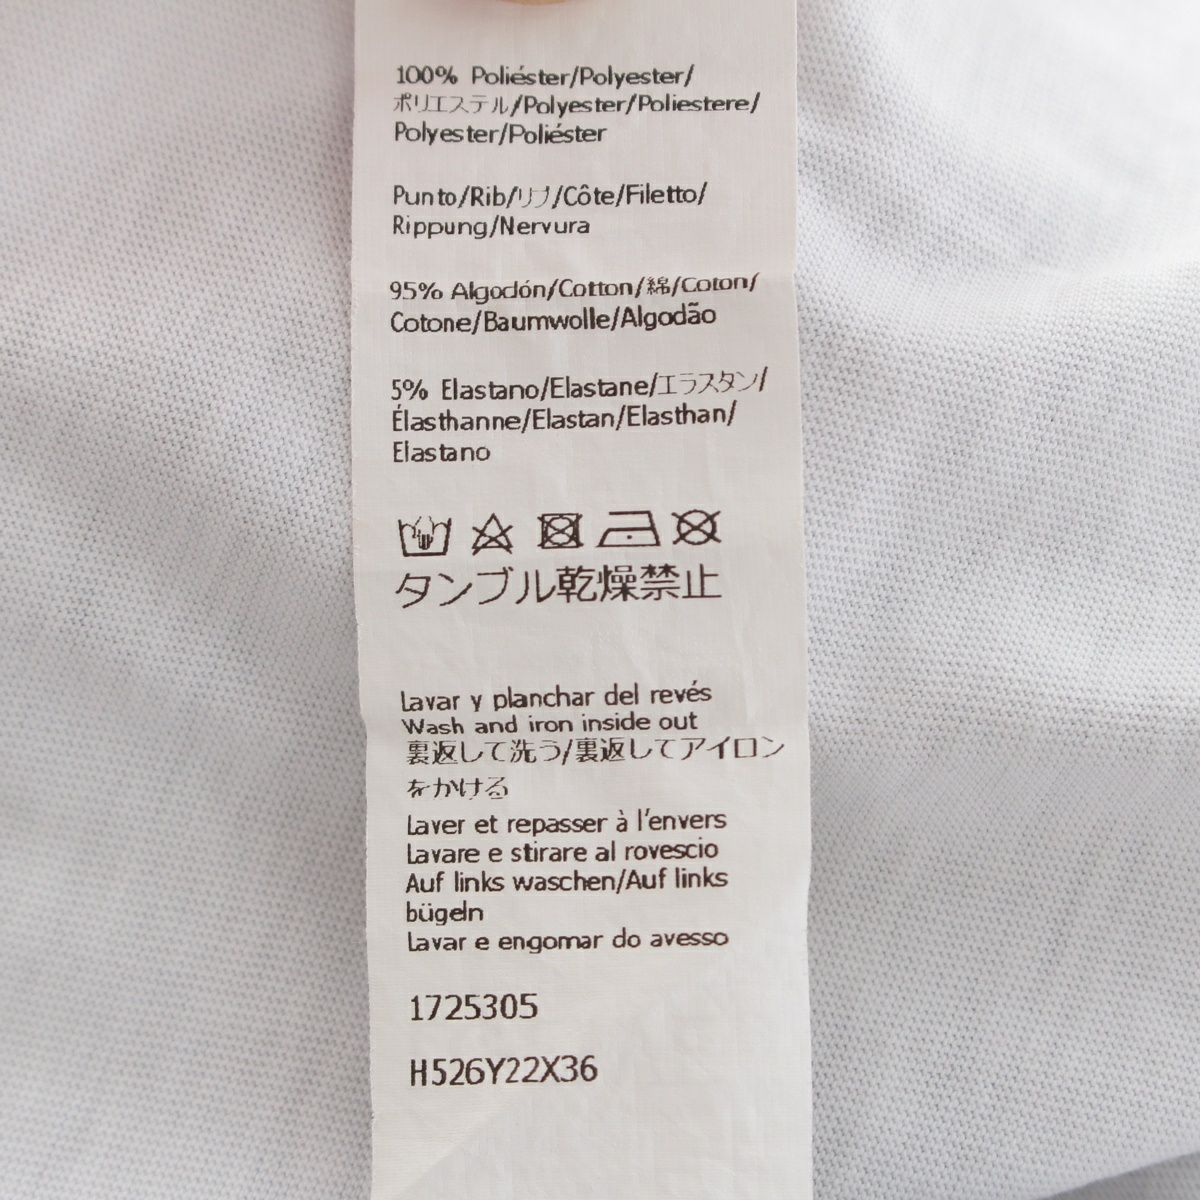 100% Poliéster/Polyester/
ポリエステル/Polyester/Poliestere/
Polyester/Poliéster
Punto/Rib/リブ/Côte/Filetto/
Rippung/Nervura
95% Algodón/Cotton/綿/Coton/
Cotone/Baumwolle/Algodão
5% Elastano/Elastane/エラスタン/
Élasthanne/Elastan/Elasthan/
Elastano
タンブル乾燥禁止
Lavar y planchar del revés
Wash and iron inside out
裏返して洗う/裏返してアイロン
をかける
Laver et repasser à l'envers
Lavare e stirare al rovescio
Auf links waschen/Auf links
bügeln
Lavar e engomar do avesso
1725305
H526Y22X36